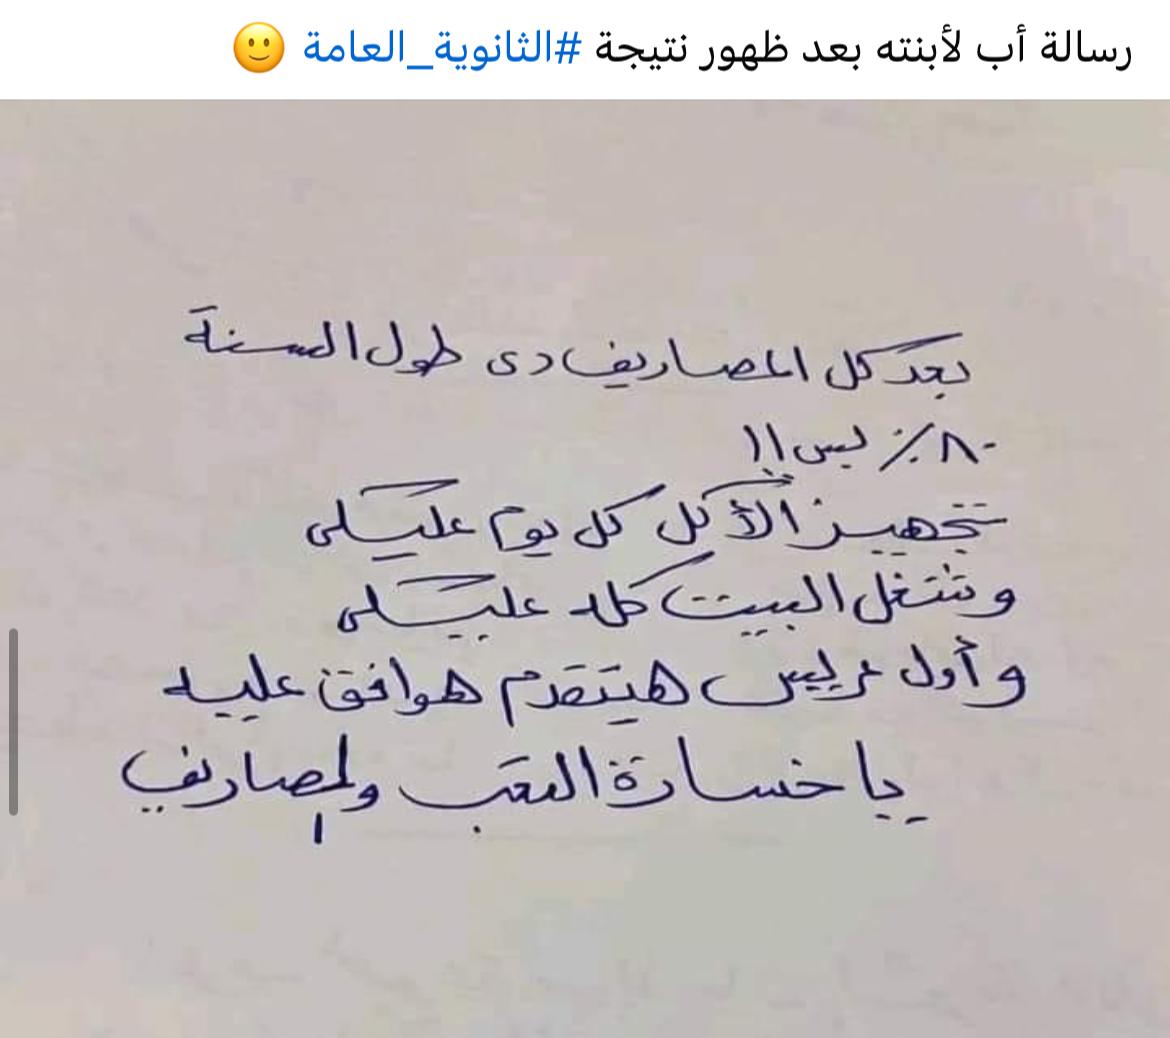 رسالة أب لأبنته بعد ظهور نتيجة #الثانوية_العامة 🙂
بعد كل المصاريف دى طول السنة
٨٠٪ بس !!
تجهيز الأكل كل يوم عليكى
وشغل البيت كله عليكى
وأول عريس هيتقدم هوافق عليه
يا خسارة التعب والمصاريف